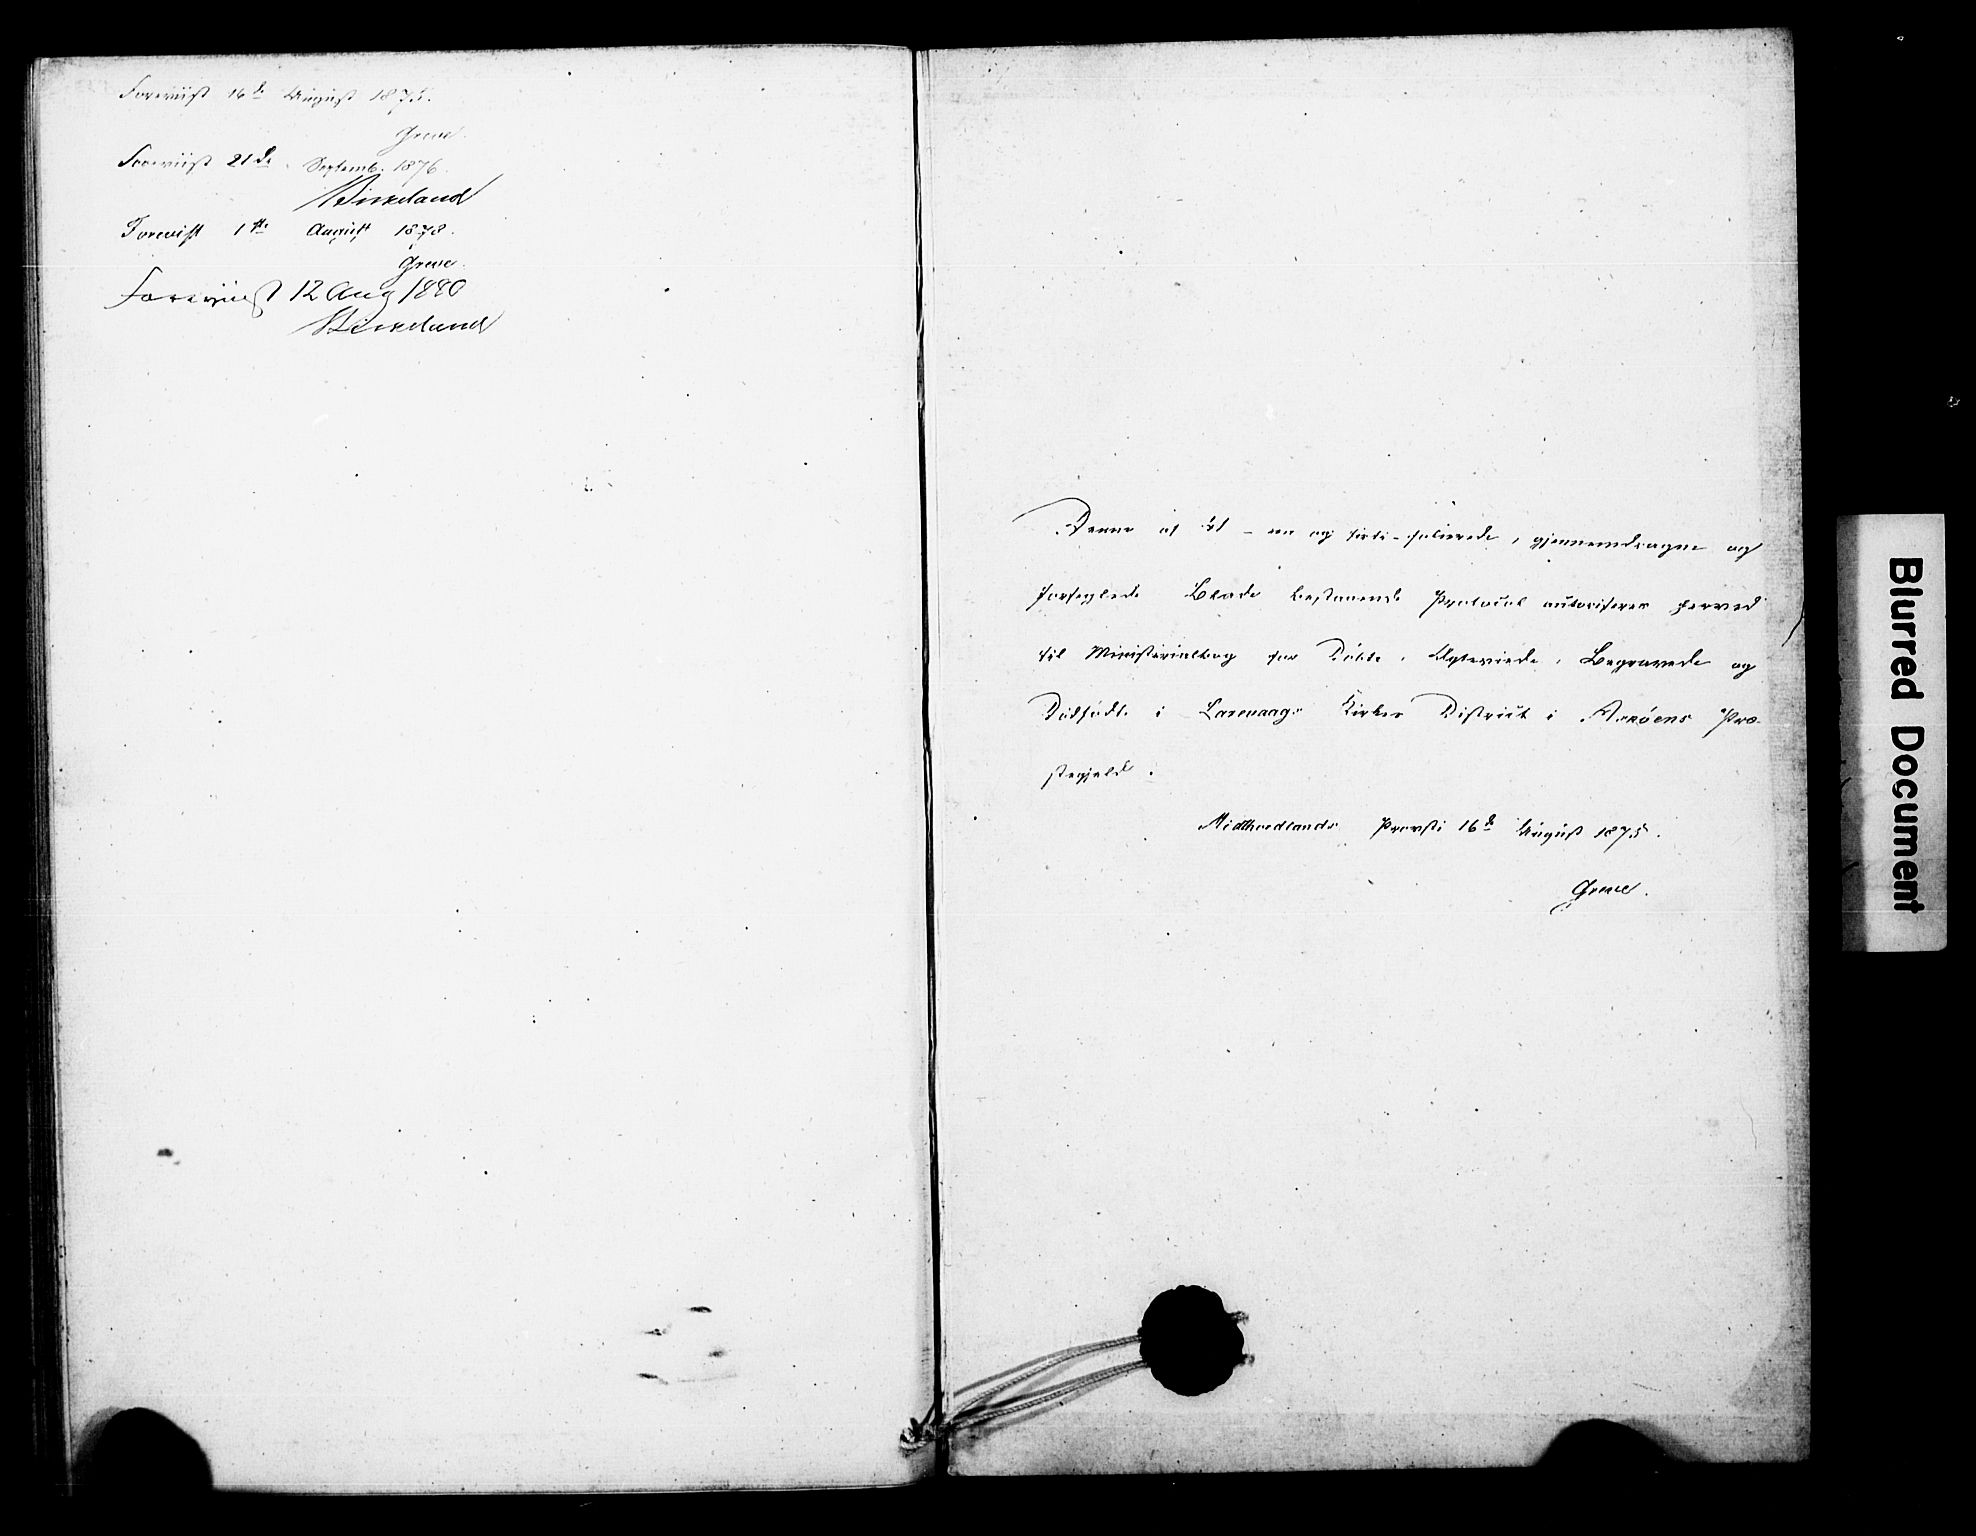 Foreviist 16de August 1875.
Greve.
Foreviist 21de Septemb. 1876.
Birkeland
Forevist 1ste August 1878.
Greve.
Foreviist 12 Aug 1880
Birkeland
Denne af 41 – en og firti – folierede, gjennemdragne og
forseglede Blade bestaaende Protocol autoriseres herved
til Ministerialbog for Döbte, Ægteviede, Begravede og
Dödfödte i Larevaags Kirkes District i Asköens Præ-
stegjeld.
Midthordlands Provsti 16de August 1875.
Greve.
Blurred Document